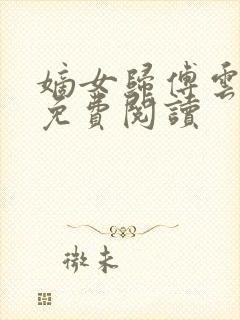 嫡女歸傅雲
免費閱讀
微未